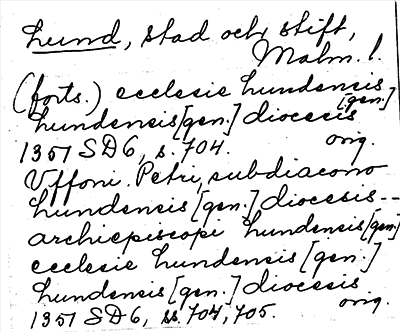 Lund, stad och stift,
Malm. l.
(forts.) ecclesie Lundensis
Lundensis [gen.] diocesis [gen.]
1351 SD6, s. 704. orig.
Uffoni Petri, subdiacono
Lundensis [gen.] diocesis --
archiepiscopi Lundensis [gen.]
ecclesie Lundensis [gen.]
Lundensis [gen.] diocesis
1351 SD6, ss. 704, 705. orig.